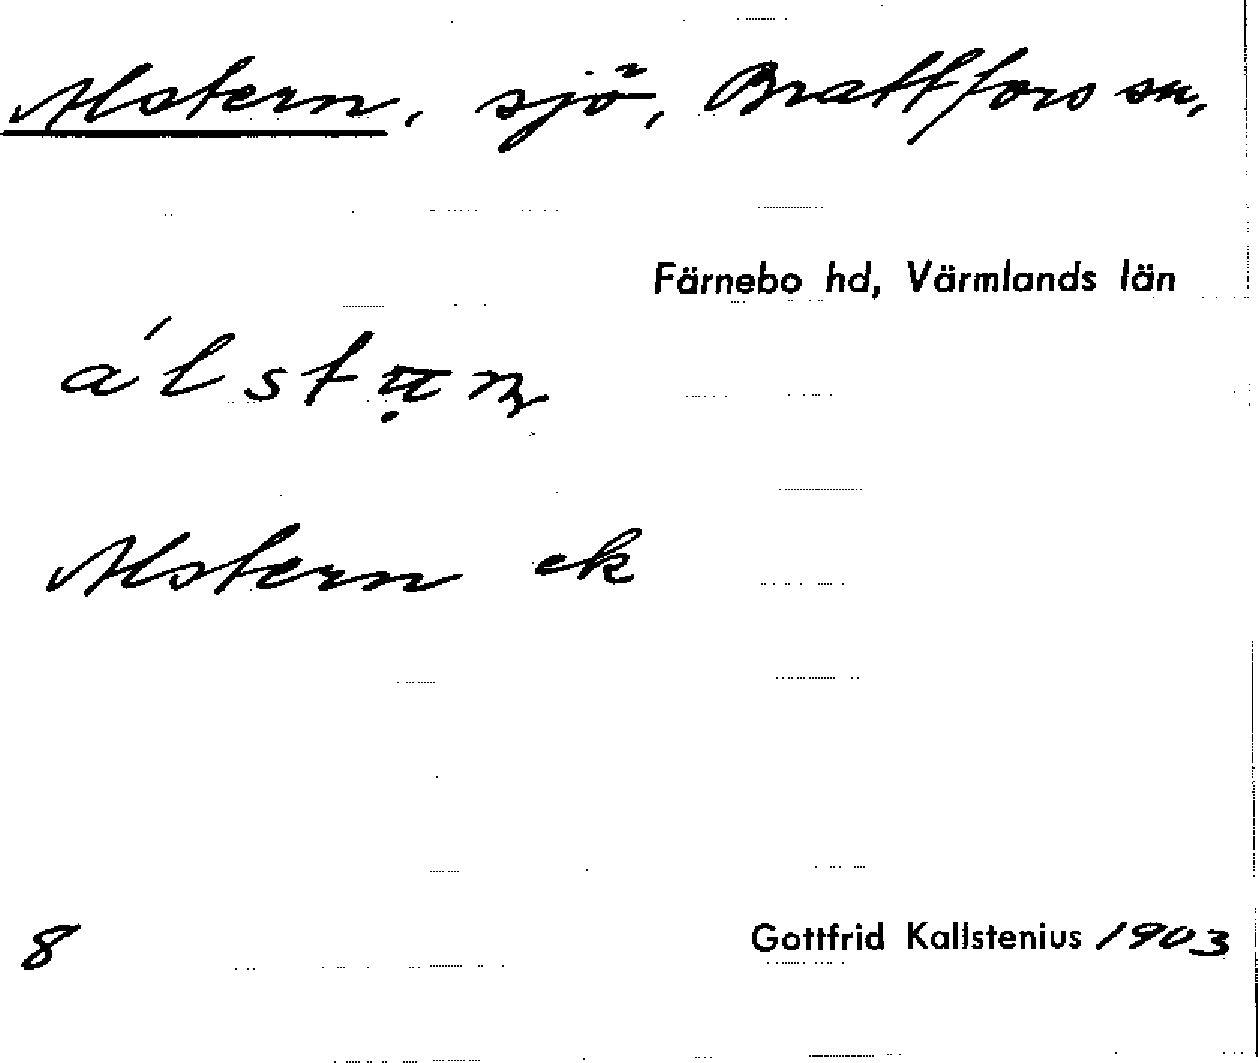 Alstern, sjö, Brattfors sn,
Färnebo hd, Värmlands län
Alstern ek
8 Gottfrid Kallstenius 1903